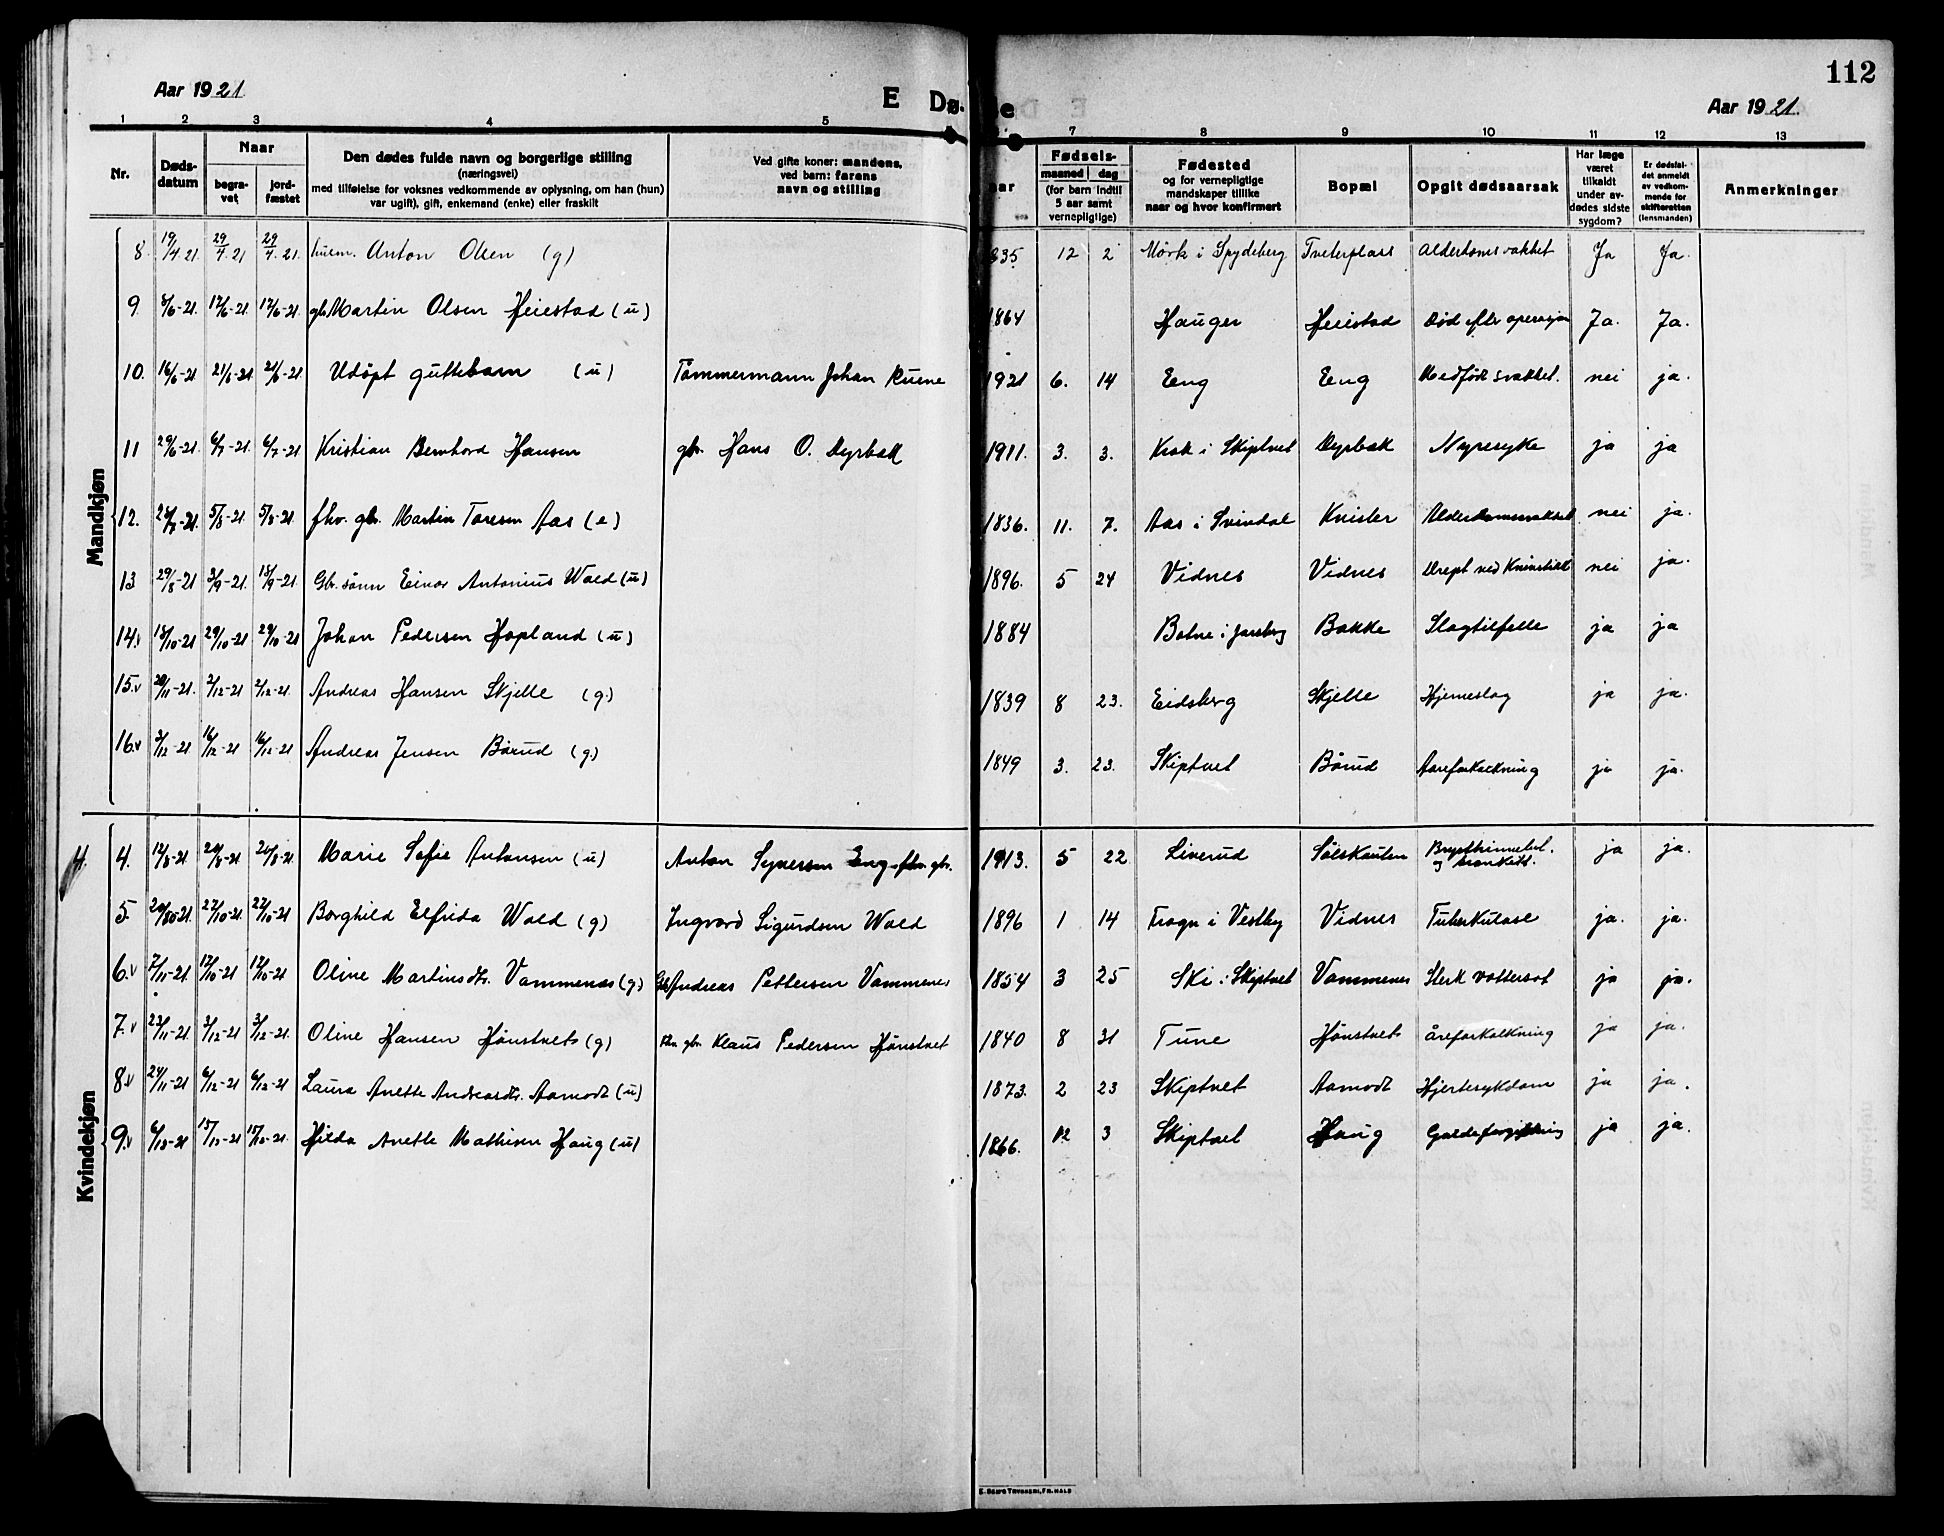 Aar 1921
E Dø
de
112
Aar 1921.
1 2 3 4 5 7 8 9 10 11 12 13
Nr.
Døds-
datum
Naar
begra-
vet
jord-
fæstet
Den dødes fulde navn og borgerlige stilling
(næringsvei)
med tilføielse for voksnes vedkommende av oplysning, om han (hun)
var ugift), gift, enkemand (enke) eller fraskilt
Ved gifte koner: mandens,
ved barn: farens
navn og stilling
aar
Fødsels-
maaned dag
(for barn indtil
5 aar samt
vernepligtige)
Fødested
og for vernepligtige
mandskaper tillike
naar og hvor konfirmert
Bopæl
Opgit dødsaarsak
Har læge
været
tilkaldt
under av-
dødes sidste
sygdom?
Er dødsfal-
det anmeldt
av vedkom-
mende for
skifteretten
(lensmanden)
Anmerkninger
Mandkjøn
8. 19/4.21 29/4.21 29/4.21 husm. Anton Olsen (g) 835. 12 2 Mörk i Spydeberg Tveterplass Alderdomssvakhet Ja Ja.
9. 8/6-21. 17/6-21. 17/6-21 gbr Martin Olsen Heiestad (u) 1864 Hauger Heiestad Död efter operasjon Ja. Ja.
10. 16/6-21 21/6-21 21/6-21 Udöpt guttebarn (u) Tömmermann Johan Ruene 1921 6. 14 Eng Eng Medfödt svakhet. nei ja.
11 29/6-21. 6/7-21. 6/7-21 Kristian Bernhard Hansen gbr. Hans O. Dyrbak 1911. 3. 3. Krok i Skiptvet Dyrbak Nyresyke ja ja
12. 5/8-21. 5/8-21. fhv. gbr. Martin Toresen Aas (e) 1836. 11. 7. Aas i Svindal Knisler nei ja.
13 29/8-21 3/9-21. 18/9-21. Gbr. sönn Einar Antonius Wold (u) 1896. 5 24 Vidnes Vidnes Drept ved Knivstikk nei ja.
14v 18/10-21 29/10-21 29/10-21 Johan Pedersen Hopland (u) 1884 Botne i Jarsberg Bakke Slagtilfelle ja ja
15.v 20/11-21. 2/12-21 2/12-21. Andreas Hansen Skjelle (g.) 1839 8 23. Eidsberg Skjelle Hjerneslag ja ja.
16v 3/12-21. 16/12-21 16/12-21 Andreas Jensen Börud (g.) 1849 3. 23. Skiptvet Börud Aareforkalkning ja ja.
Kvindekjøn
4. 4. 14/8-21 20/8-21 Marie Sofie Antonsen (u) Anton Syversen Eng fhv. gbr. 1913. 5 22 Liverud Sölskauten ja ja.
5. 22/10-21. 22/10-21 Borghild Elfrida Wold (g) Ingvard Sigurdsen Wold 1896 1 14 Frogn i Vestby Vidnes Tuberkulose ja. ja.
6.v Oline Martinsdtr. Vammenæs (g) Gbr. Andreas Pettersen Vammenes 1854 3 25 Ski i Skiptvet Vammenes Sterk vottersot ja ja.
7.v 23/11-21. 3/12-21. 3/12-21. Oline Hansen Hönstvet (g) fhv. gbr. Klaus Pedersen Hönstvet 1840 8 31 Tune Hönstvet åreforkalkning ja ja.
8.v 24/11-21 6/12-21 6/12-21 Laura Anette Andreasdtr. Aamodt (u) 1873. 2 23 Skiptvet Aamodt Hjertesykdom ja ja.
9.v 6/12-21 15/12-21 15/12-21. Hilda Anette Mathisen Haug (u) 1866. 12 3 Skiptvet Haug Galdeforgiftning ja ja.